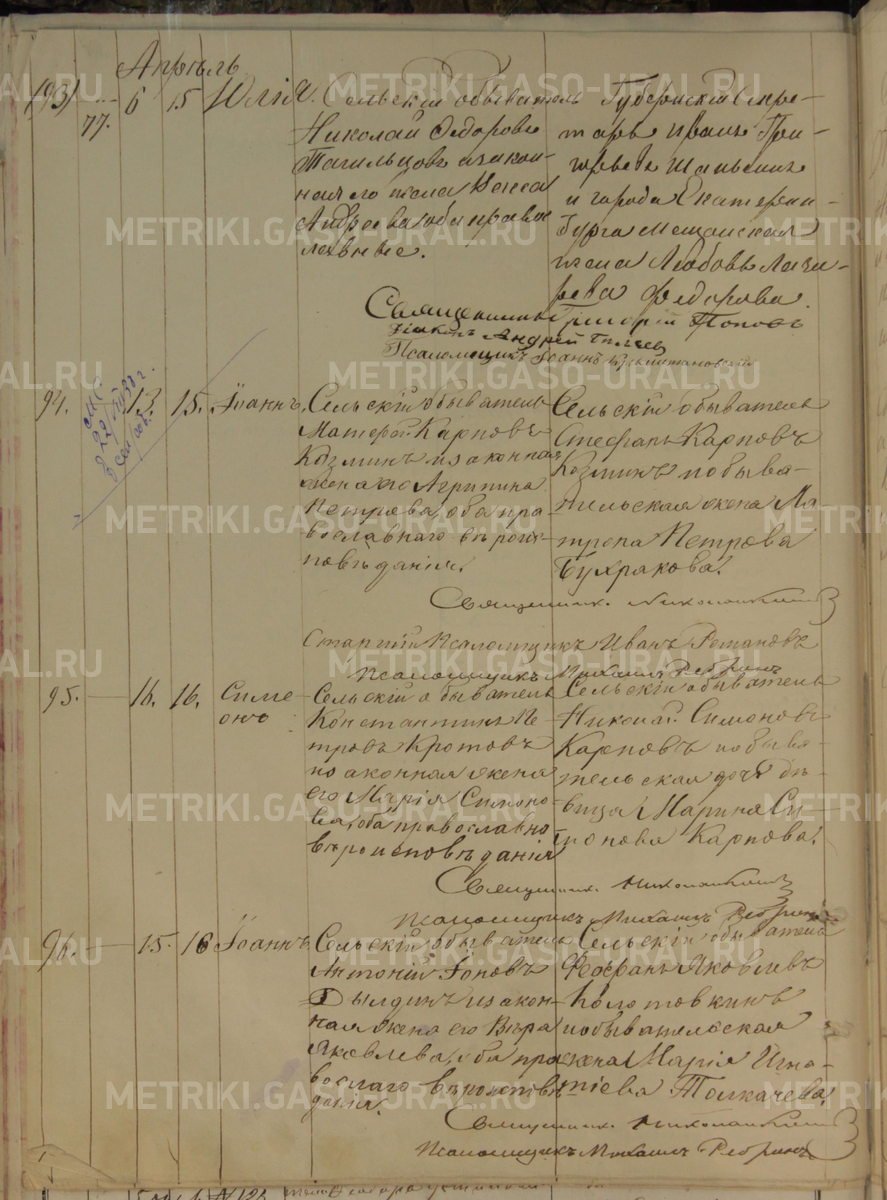 Апрѣль
(93)
77.
6
15
Юлія.
Сельскій обыватель
Николай Ѳедоровъ
Тагильцовъ и закон-
ная его жена
Андреева, оба правос-
лавные.
Губернскій Секре-
тарь Иванъ Гри-
горьевъ
и города Екатерин-
бурга Мещанская
жена Любовь Лаза-
рева Ѳедорова.
Священникъ Григорій Поповъ
Діаконъ Андрей
Псаломщикъ Іоаннъ
94.
13.
15.
Іоаннъ.
Сельскій обыватель
Матѳей Карповъ
Козминъ и законная
жена его Агрипина
Петрова, оба пра-
вославнаго вѣроис-
повѣданія.
Сельскій обыватель
Стефанъ Карповъ
Козминъ и обыва-
тельская жена Ма-
трена Петрова
Бухрякова.
Священникъ
Старшій Псаломщикъ Иванъ Романовъ
Псаломщикъ Михаилъ Ребринъ
95.
16.
16.
Симе-
онъ
Сельскій обыватель
Константинъ Пе-
тровъ Кротовъ
и законная жена
его Марія Симоно-
ва, оба православно
вѣроисповѣданія
Сельскій обыватель
Николай Симоновъ
Карповъ и обыва-
тельская дочь дѣ-
вица Марина Си-
монова Карпова.
Священникъ
Псаломщикъ Михаилъ Ребринъ
96.
15.
16
Іоаннъ
Сельскій обыватель
Антоній Іоновъ
Дылдинъ и закон-
ная жена его Вѣра
Яковлева, оба пра-
вослаго вѣроисповѣ-
данія.
Сельскій обыватель
Яковлевъ
Колотовкинъ
и обывательская
жена Марія Игна-
тіева Толкачева.
Священникъ
Псаломщикъ Михаилъ Ребринъ
METRIKI.GASO-URAL.RU